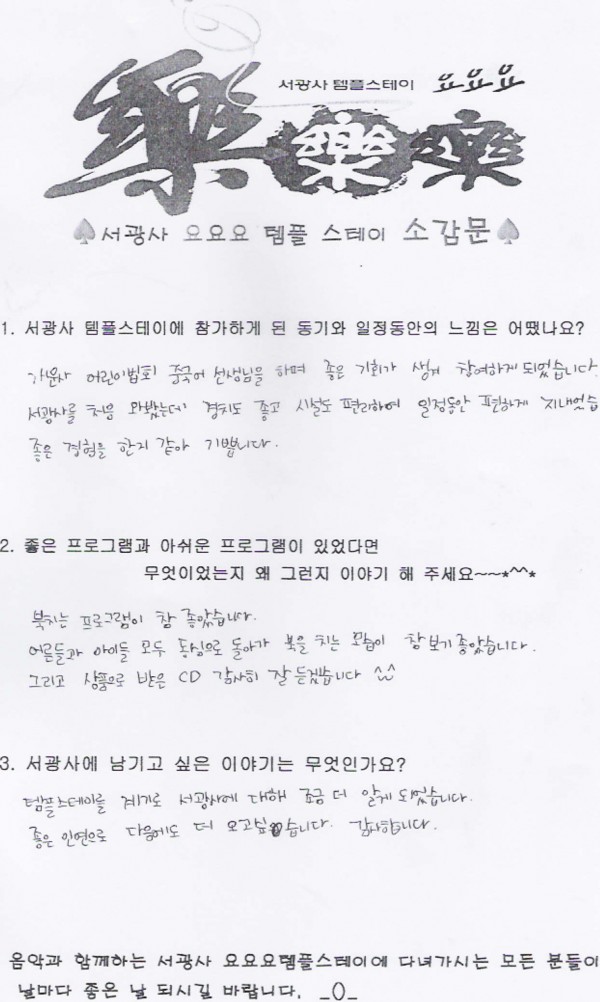 서광사 템플스테이 요요요
樂樂樂
♠서광사 요요요 템플 스테이 소감문♠
1. 서광사 템플스테이에 참가하게 된 동기와 일정동안의 느낌은 어땠나요?
어린이법회 중국어 선생님을 하며 좋은 기회가 생겨 참여하게 되었습니다.
서광사를 처음 와봤는데 경치도 좋고 시설도 편리하여 일정동안 편하게 지내었습
좋은 경험을 한지 같아 기쁩니다.
2. 좋은 프로그램과 아쉬운 프로그램이 있었다면
무엇이었는지 왜 그런지 이야기 해 주세요~~*^^*
북치는 프로그램이 참 좋았습니다.
어른들과 아이들 모두 동심으로 돌아가 북을 치는 모습이 참 보기 좋았습니다.
그리고 상품으로 받은 CD 감사히 잘 듣겠습니다 ^^
3. 서광사에 남기고 싶은 이야기는 무엇인가요?
템플스테이를 계기로 서광사에 대해 조금 더 알게 되었습니다.
좋은 인연으로 다음에도 더 오고싶습니다. 감사합니다.
음악과 함께하는 서광사 요요요템플스테이에 다녀가시는 모든 분들이
날마다 좋은 날 되시길 바랍니다. _()_